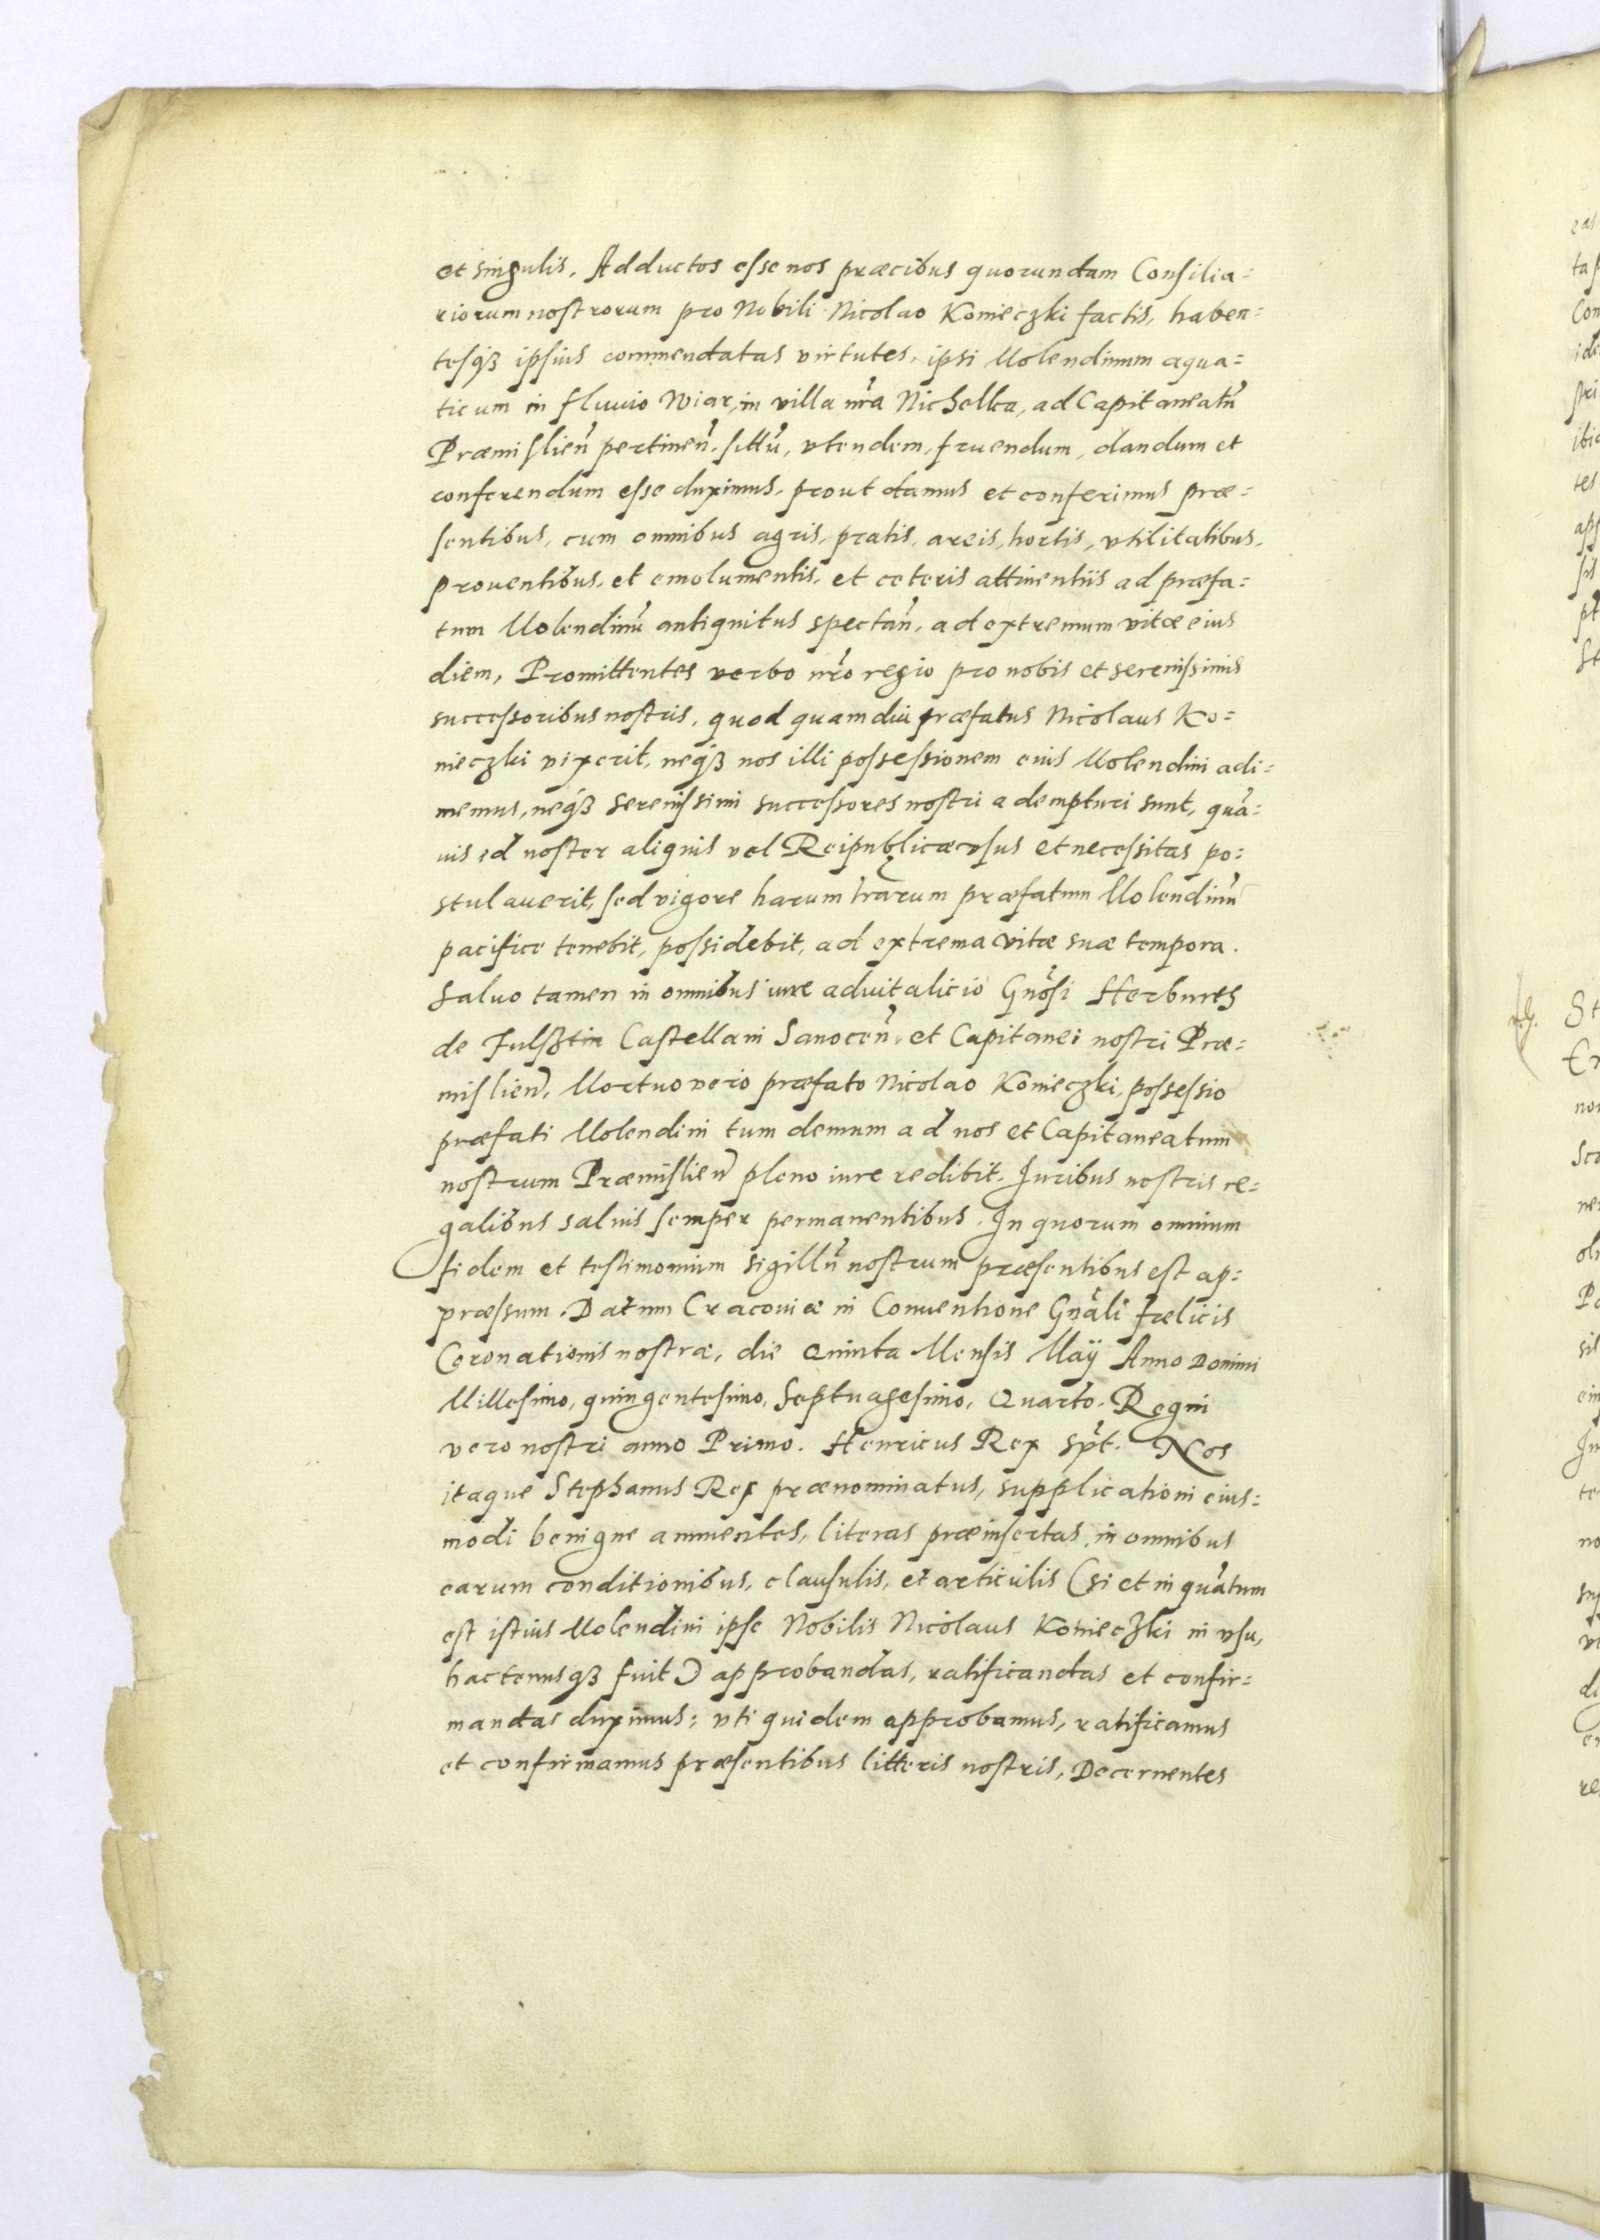 et singulis. Adductos esse nos præcibus quorundam Consilia=
riorum nostrorum pro Nobili Nicolao Konieczki factis, haben=
tesq₃ ipsius commendatas virtutes, ipsi Molendinum aqua=
ticum in fluuio Wiar, in villa nr̃a Nichelka, ad Capitaneatũ
Præmislieñ pertineñ. sittũ, vtendem, fruendum, dandum et
conferendum esse duximus, prout damus et conferimus præ=
sentibus, cum omnibus agris, pratis, areis, hortis, vtilitatibus,
prouentibus, et emolumentis, et ceteris attinentiis ad præfa=
tum Molendinũ antiquitus spectañ, ad extremum vitæ eius
diem, Promittentes verbo nr̃o regio pro nobis et serenissimis
successoribus nostris, quod quamdiu præfatus Nicolaus Ko=
nieczki vixerit, neq₃ nos illi possessionem eius Molendini adi=
memus, neq₃ serenissimi successores nostri adempturi sunt, quã=
uis id noster aliquis vel Reipublicæ vsus et necessitas po=
stulauerit, sed vigore harum l̃rarum præfatum Molendinũ
pacifice tenebit, possidebit, ad extrema vitæ suæ tempora.
Saluo tamen in omnibus iure aduitalicio Gñosi Herburth
de Fulsztin Castellani Sanoceñ. et Capitanei nostri Præ=
mislieñ. Mortuo vero præfato Nicolao Konieczki, possessio
præfati Molendini tum demum ad nos et Capitaneatum
nostrum Præmislieñ pleno iure redibit. Juribus nostris re=
galibus saluis semper permanentibus. In quorum omnium
fidem et testimonium sigillũ nostrum præsentibus est ap=
præssum. Datum Cracouiæ in Conuentione Gñali fælicis
Coronationis nostræ, die Quinta Mensis Maÿ Anno Domini
Millesimo, quingentesimo, Septuagesimo, Quarto. Regni
vero nostri anno Primo. Henricus Rex sp̃t. Nos
itaque Stephanus Rex prænominatus, supplicationi eius=
modi benigne annuentes, literas præinsertas, in omnibus
earum conditionibus, clausulis, et articulis (si et in quãtum
est istius Molendini ipse Nobilis Nicolaus Konieczki in vsu,
hactenusq₃ fuit) approbandas, ratificandas et confir=
mandas duximus; vti quidem approbamus, ratificamus
et confirmamus præsentibus litteris nostris, Decernentes